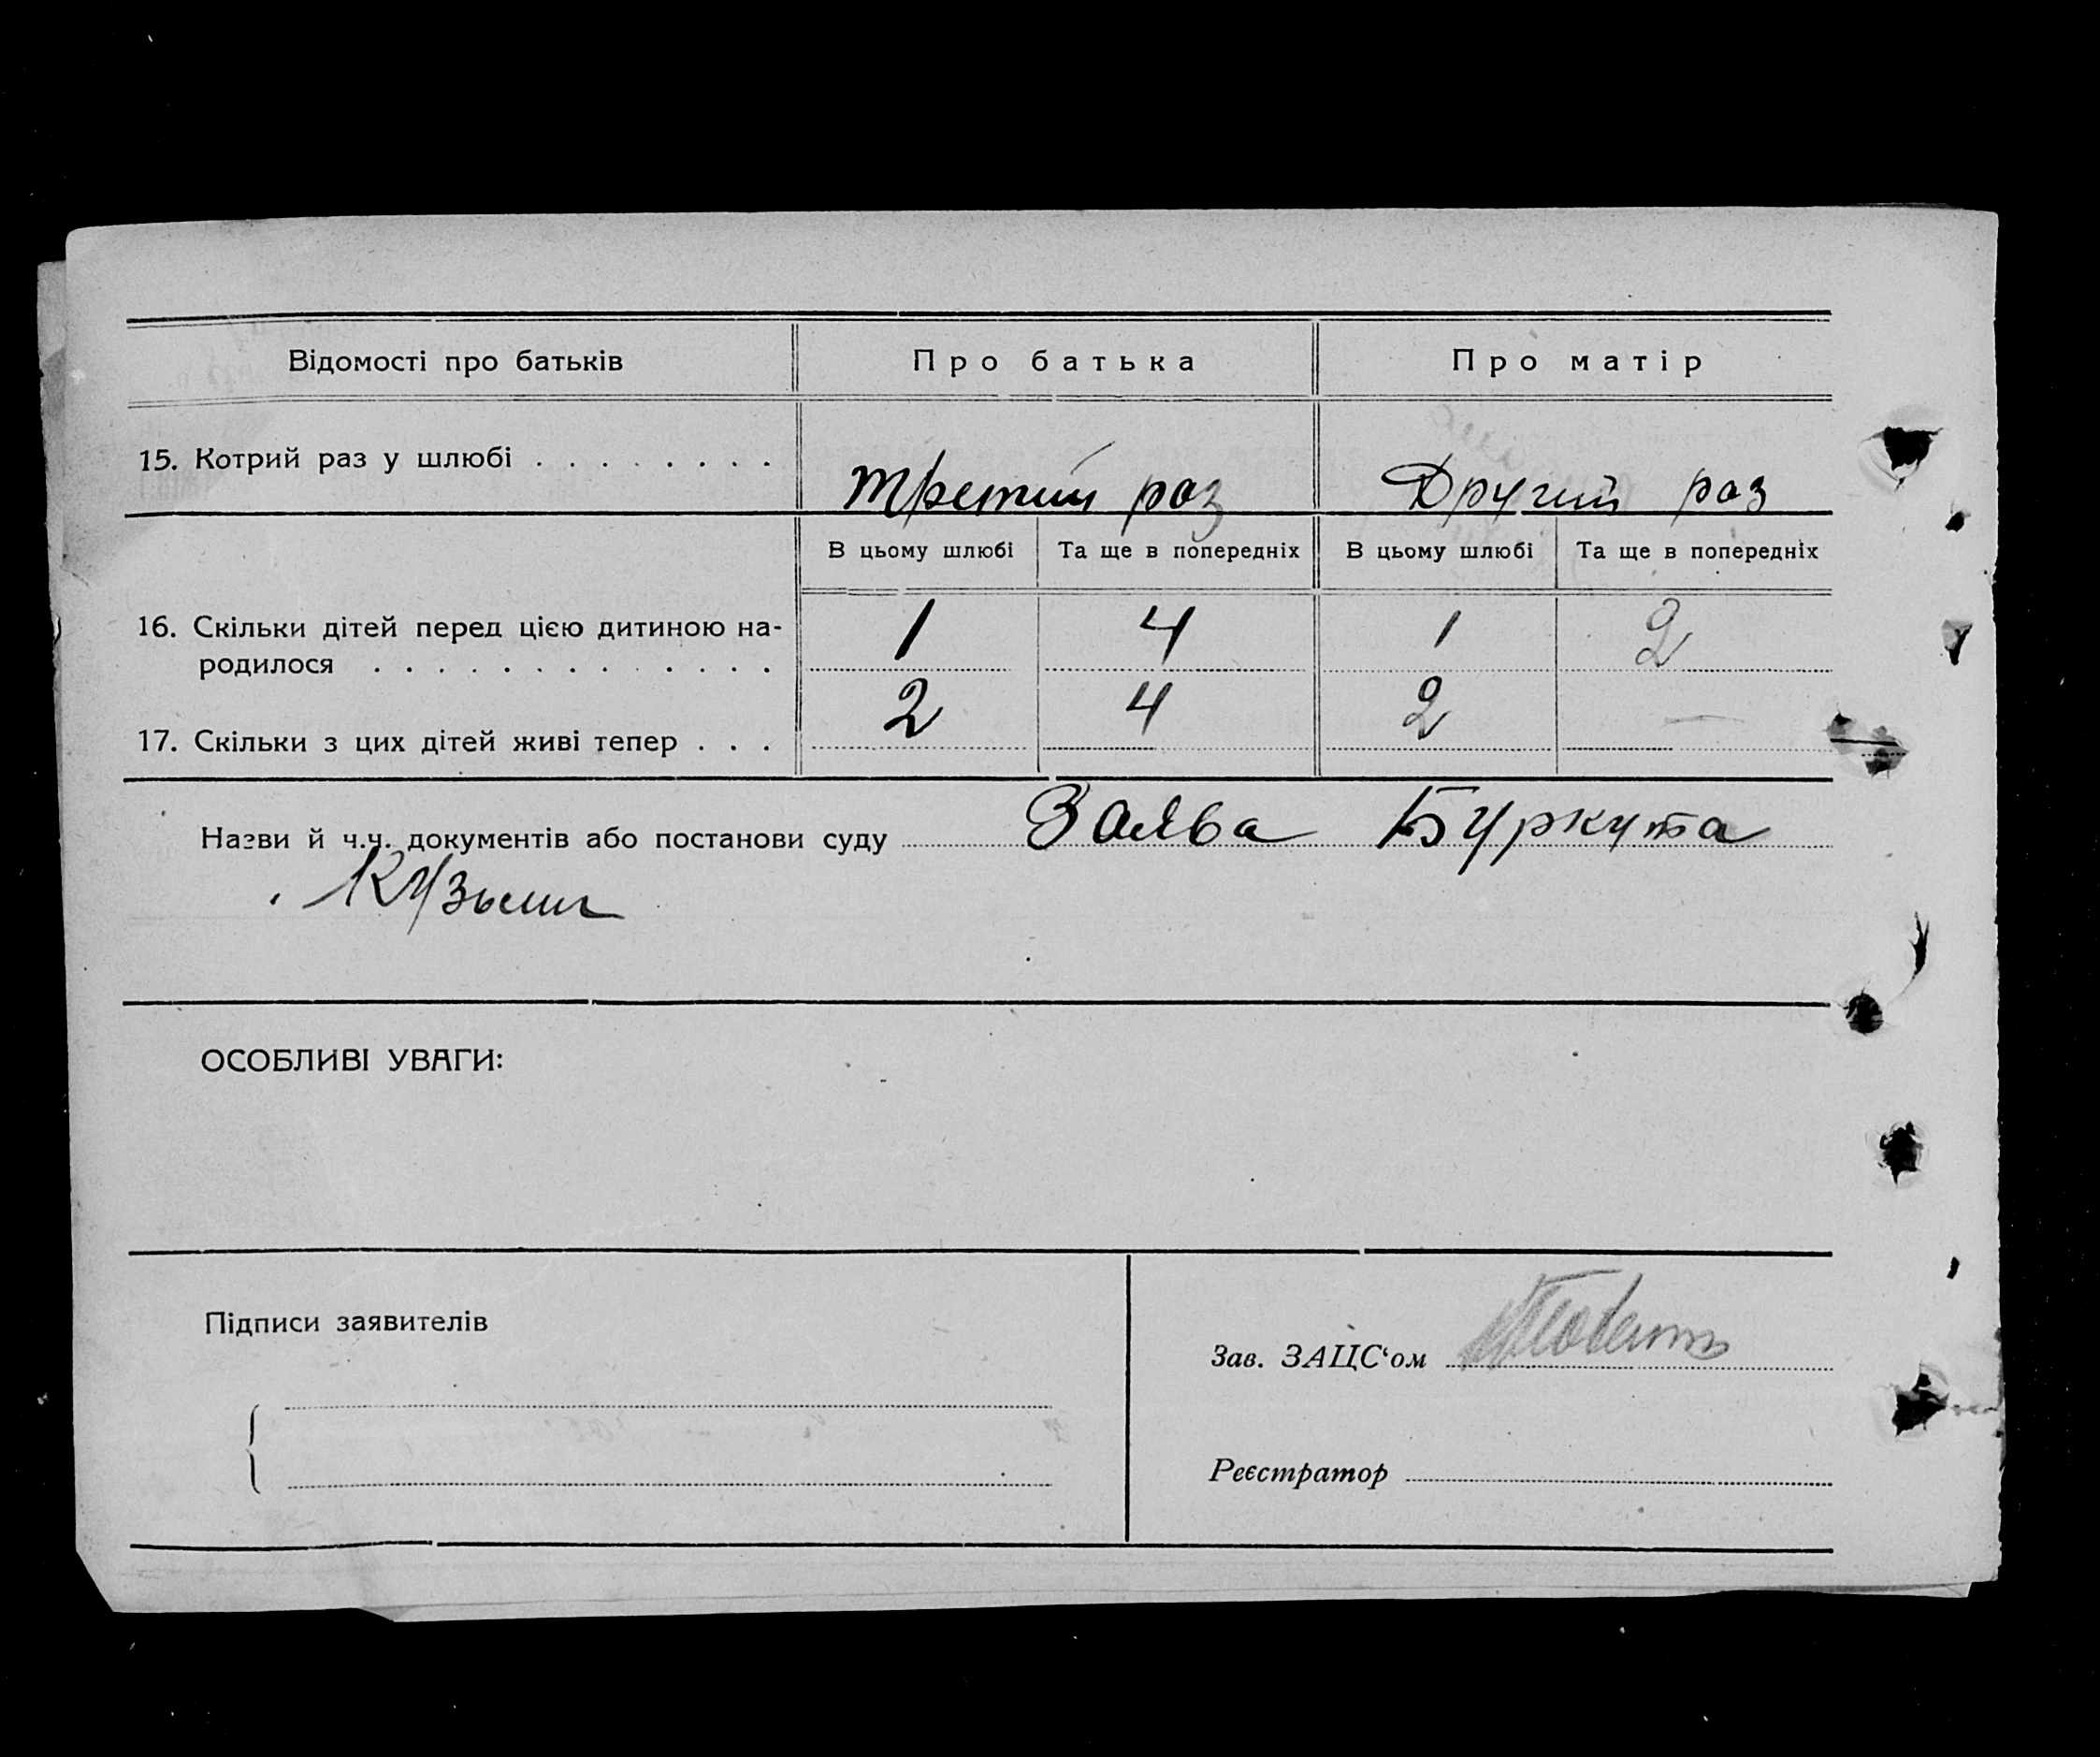 Відомості про батьків Про батька Про матір
15. Котрий раз у шлюбі . . . . . . . . третий раз Другий раз
В цьому шлюбі Та ще в попередніх В цьому шлюбі Та ще в попередніх
16. Скільки дітей перед цією дитиною на-
родилося . . . . . . . . . . . . . 1 4 1 2
17. Скільки з цих дітей живі тепер . . . 2 4 2 —
Назви й ч.ч. документів або постанови суду Заява Буркута
Кузьми
ОСОБЛИВІ УВАГИ:
Підписи заявителів
Зав. ЗАЦС‘ом
Реєстратор